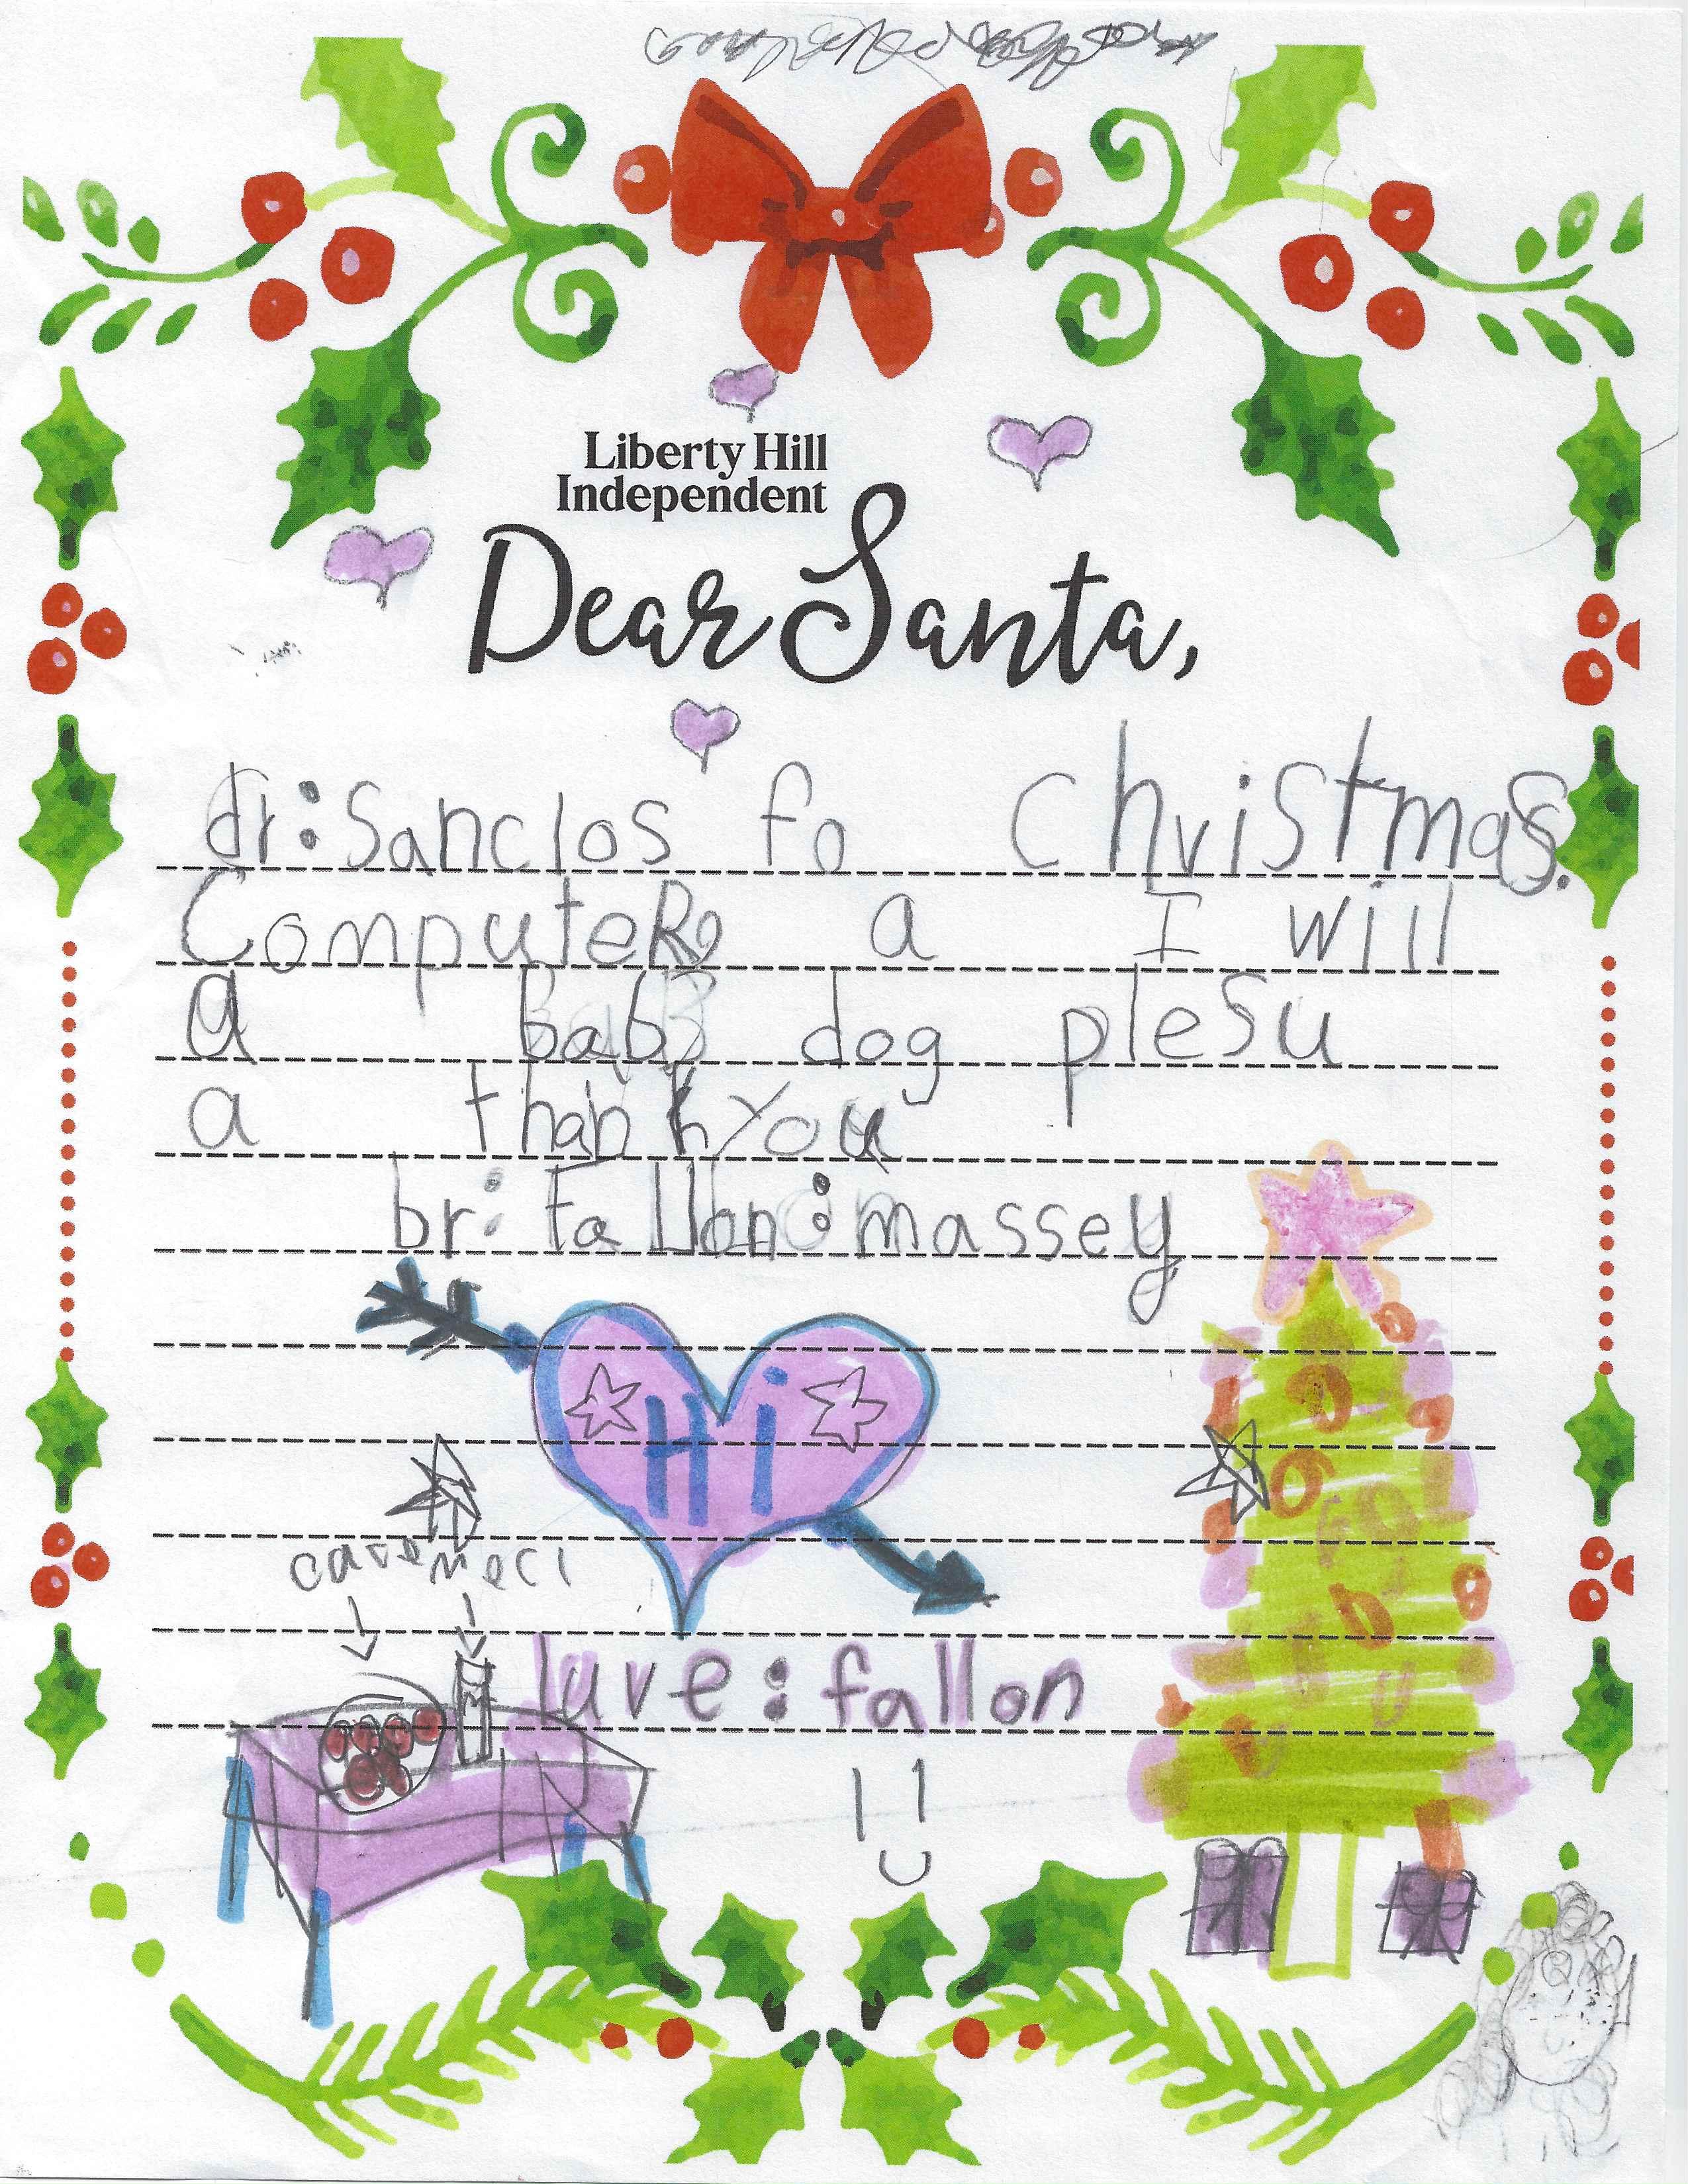 Liberty Hill
Independent
Dear Santa,
dr:Sanclos fo Christmas.
Computer a I will
a bab dog plesu
a thank you
br: Fallon:massey
Hi
care meci
luve:fallon